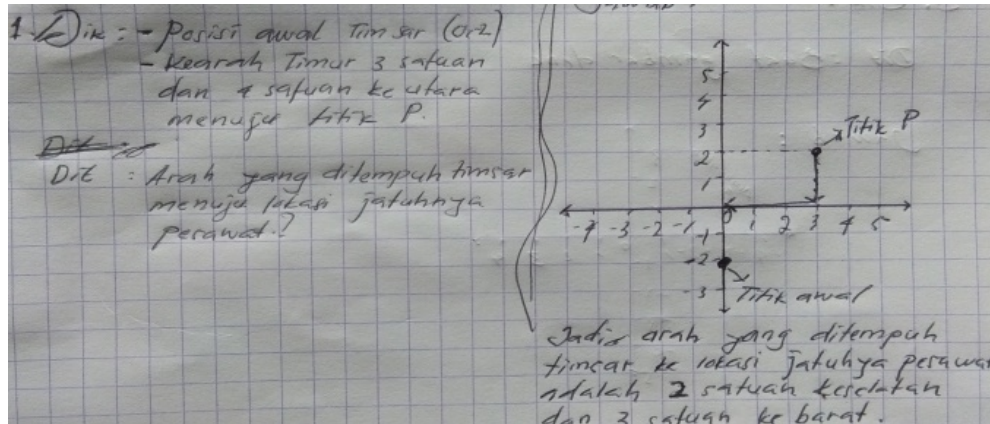 1. Dik : - Posisi awal Tim Sar (0,-2)
- Kearah Timur 3 satuan
dan 4 satuan ke utara
menuju titik P.
Dit : Arah yang ditempuh timsar
menuju lokasi jatuhnya
perawat.?
5
4
3
2
1
Titik P
-4 -3 -2 -1 0 1 2 3 4 5
-1
-2
-3
Titik awal
Jadi, arah yang ditempuh
timsar ke lokasi jatuhya perawat
adalah 2 satuan keselatan
dan 3 satuan ke barat.